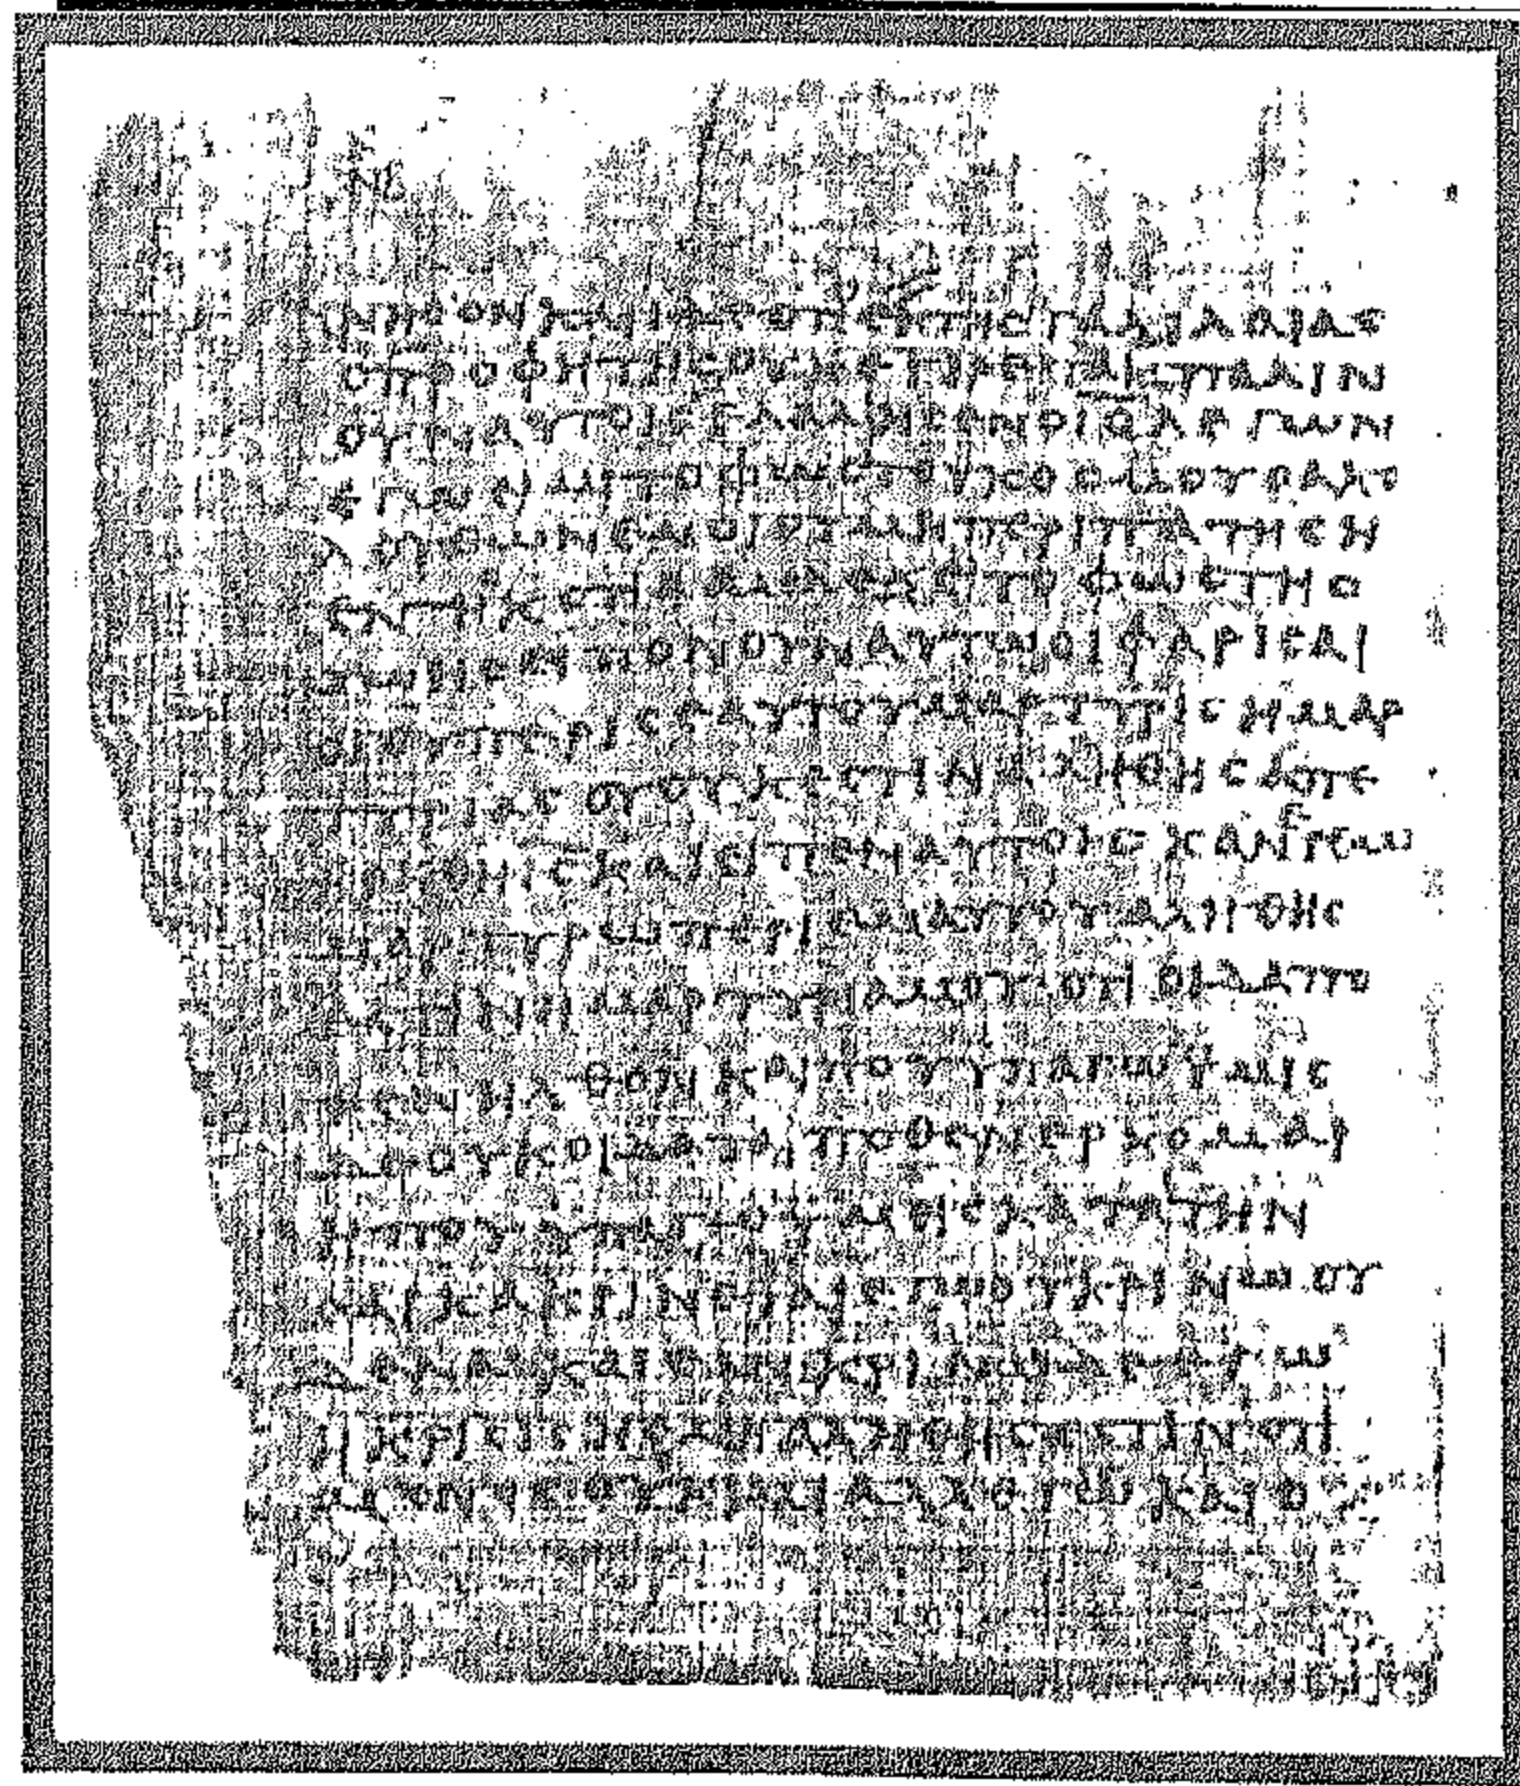 ΝΒ
ΝΗϹΟΝ ΚΑΙ ΙΔΕ ΟΤΙ ΕΚ ΤΗϹ ΓΑΛΙΛΑΙΑϹ
Ο ΠΡΟΦΗΤΗϹ ΟΥΚ ΕΓΕΙΡΕΤΑΙ ΠΑΛΙΝ
ΟΥΝ ΑΥΤΟΙϹ ΕΛΑΛΗϹΕΝ Ο ΙϹ ΛΕΓΩΝ
ΕΓΩ ΕΙΜΙ ΤΟ ΦΩϹ ΤΟΥ ΚΟϹΜΟΥ Ο ΑΚΟ
ΛΟΥΘΩΝ ΕΜΟΙ ΟΥ ΜΗ ΠΕΡΙΠΑΤΗϹΗ
ΕΝ ΤΗ ϹΚΟΤΙΑ ΑΛΛΑ ΕΞΕΙ ΤΟ ΦΩϹ ΤΗϹ
ΖΩΗϹ ΕΙΠΟΝ ΟΥΝ ΑΥΤΩ ΟΙ ΦΑΡΙϹΑΙ
ΟΙ ϹΥ ΠΕΡΙ ϹΕΑΥΤΟΥ ΜΑΡΤΥΡΕΙϹ Η ΜΑΡ
ΤΥΡΙΑ ϹΟΥ ΟΥΚ ΕϹΤΙΝ ΑΛΗΘΗϹ ΑΠΕ
ΚΡΙΘΗ ΙϹ ΚΑΙ ΕΙΠΕΝ ΑΥΤΟΙϹ ΚΑΝ ΕΓΩ
ΜΑΡΤΥΡΩ ΠΕΡΙ ΕΜΑΥΤΟΥ ΑΛΗΘΗϹ
ΕϹΤΙΝ Η ΜΑΡΤΥΡΙΑ ΜΟΥ ΟΤΙ ΟΙΔΑ ΠΟ
ΘΕΝ ΗΛΘΟΝ ΚΑΙ ΠΟΥ ΥΠΑΓΩ ΥΜΕΙϹ
ΔΕ ΟΥΚ ΟΙΔΑΤΕ ΠΟΘΕΝ ΕΡΧΟΜΑΙ
Η ΠΟΥ ΥΠΑΓΩ ΥΜΕΙϹ ΚΑΤΑ ΤΗΝ
ϹΑΡΚΑ ΚΡΙΝΕΤΕ ΕΓΩ ΟΥ ΚΡΙΝΩ ΟΥ
ΔΕΝΑ ΚΑΙ ΕΑΝ ΚΡΙΝΩ ΔΕ ΕΓΩ
Η ΚΡΙϹΙϹ Η ΕΜΗ ΑΛΗΘΗϹ ΕϹΤΙΝ ΟΤΙ
ΜΟΝΟϹ ΟΥΚ ΕΙΜΙ ΑΛΛ ΕΓΩ ΚΑΙ Ο